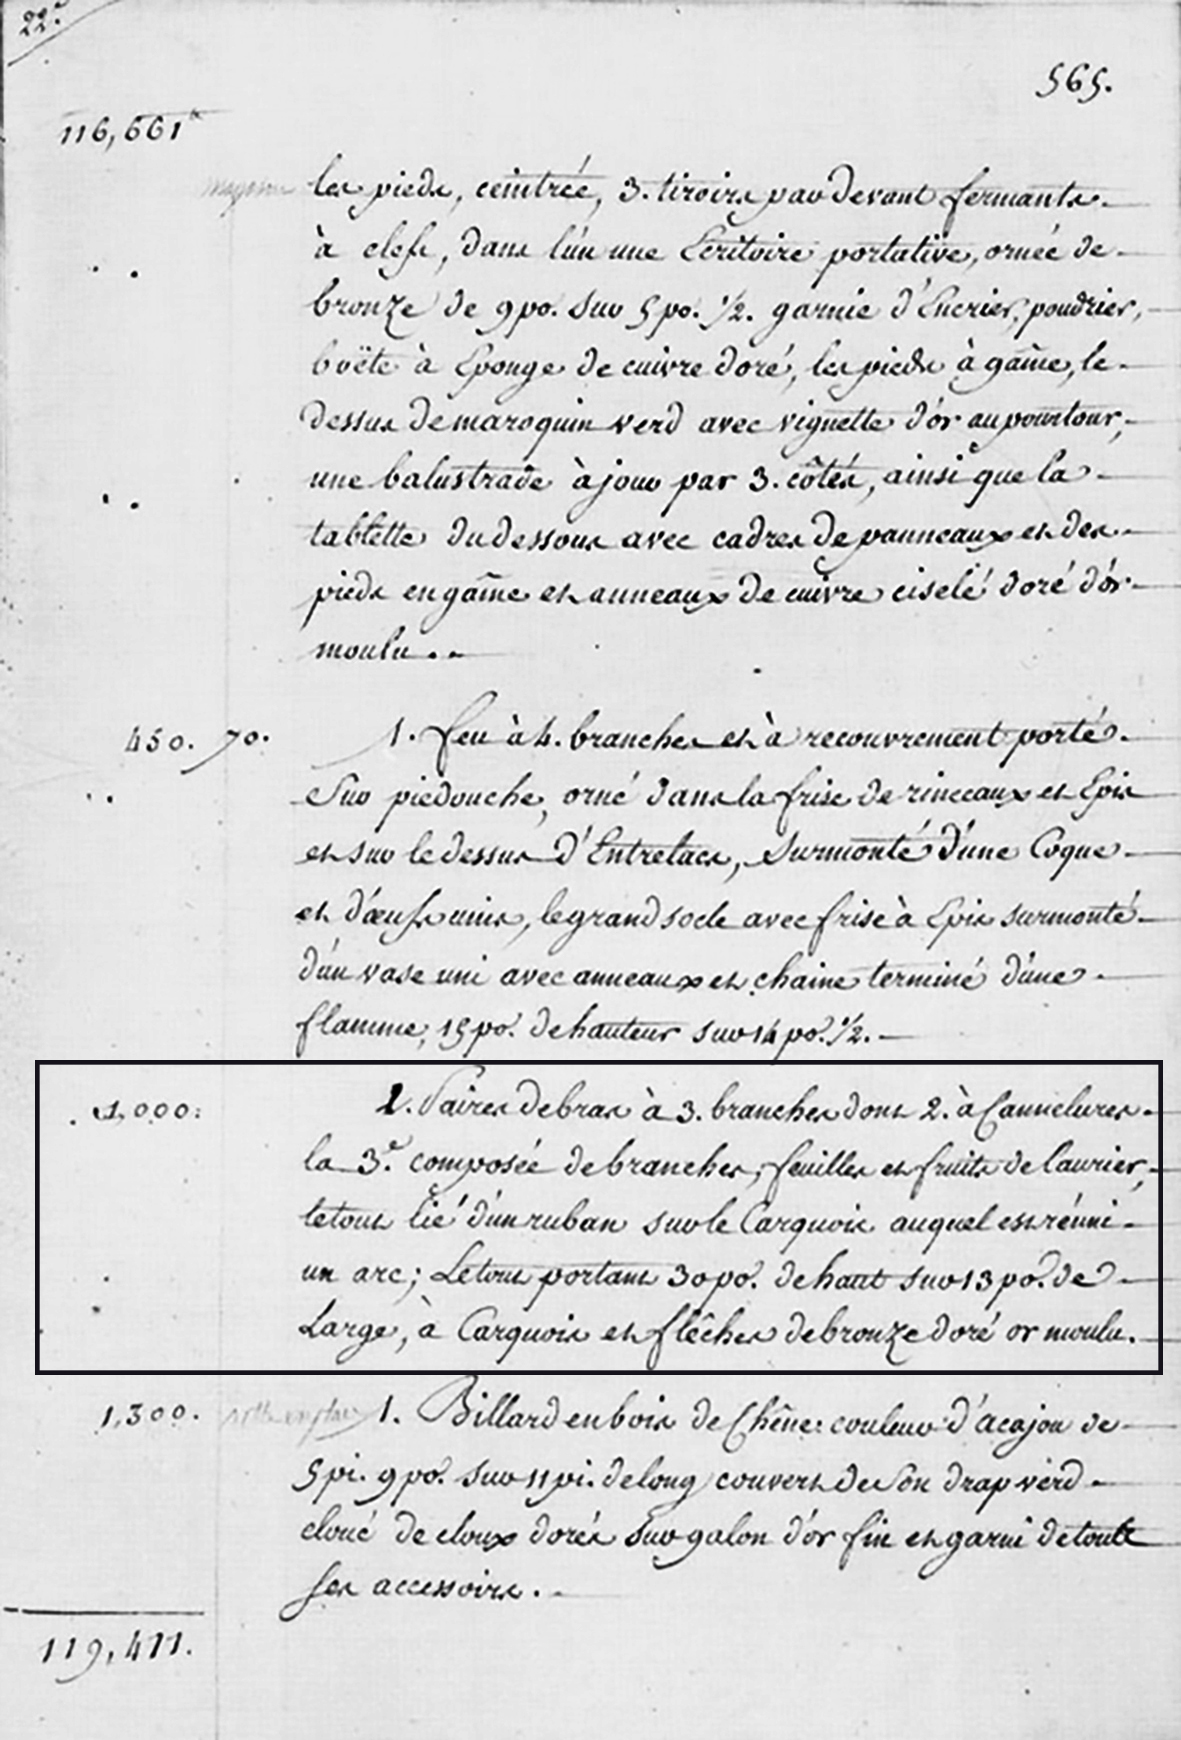 22.e
565.
116,661
les pieds, ceintrée, 3. tiroirs par devant fermants
à clefs, dans l'un une Ecritoire portative, ornée de
bronze de 9 po. sur 5 po. 1/2. garnie d'Encrier, poudrier,
boëte à Eponge de cuivre doré, les pieds à gaîne, le
dessus de maroquin verd avec vignette d'or au pourtour,
une balustrade à jour par 3. côtés, ainsi que la
tablette du dessous avec cadres de panneaux et des
pieds en gaîne et anneaux de cuivre ciselé doré d'or
moulu..
450. 70. 1. feu à 4. branches et à recouvrement porté
Sur piedouche, orné dans la frise de rinceaux et Epis
et sur le dessus d'Entrelacs, Surmonté d'une Coque
et d'œufs unis, le grand socle avec frise à Epis surmonté
d'un vase uni avec anneaux et chaine terminé d'une
flamme, 15 po. de hauteur sur 14 po. 1/2.
1,000. 2. Paires de bras à 3. branches dont 2. à Cannelures
la 3.e composée de branches, feuilles et fruits de laurier,
le tout lié d'un ruban sur le Carquois auquel est réuni
un arc; Le tout portant 30 po. de haut sur 13 po. de
Large, à Carquois et flêches de bronze doré or moulu.
1,300. 1. Billard en bois de Chêne couleur d'acajou de
5 pi. 9 po. sur 11 pi. de long couvert de Son drap verd
cloué de cloux dorés sur galon d'or fin et garni de toute
ses accessoirs.
119,411.